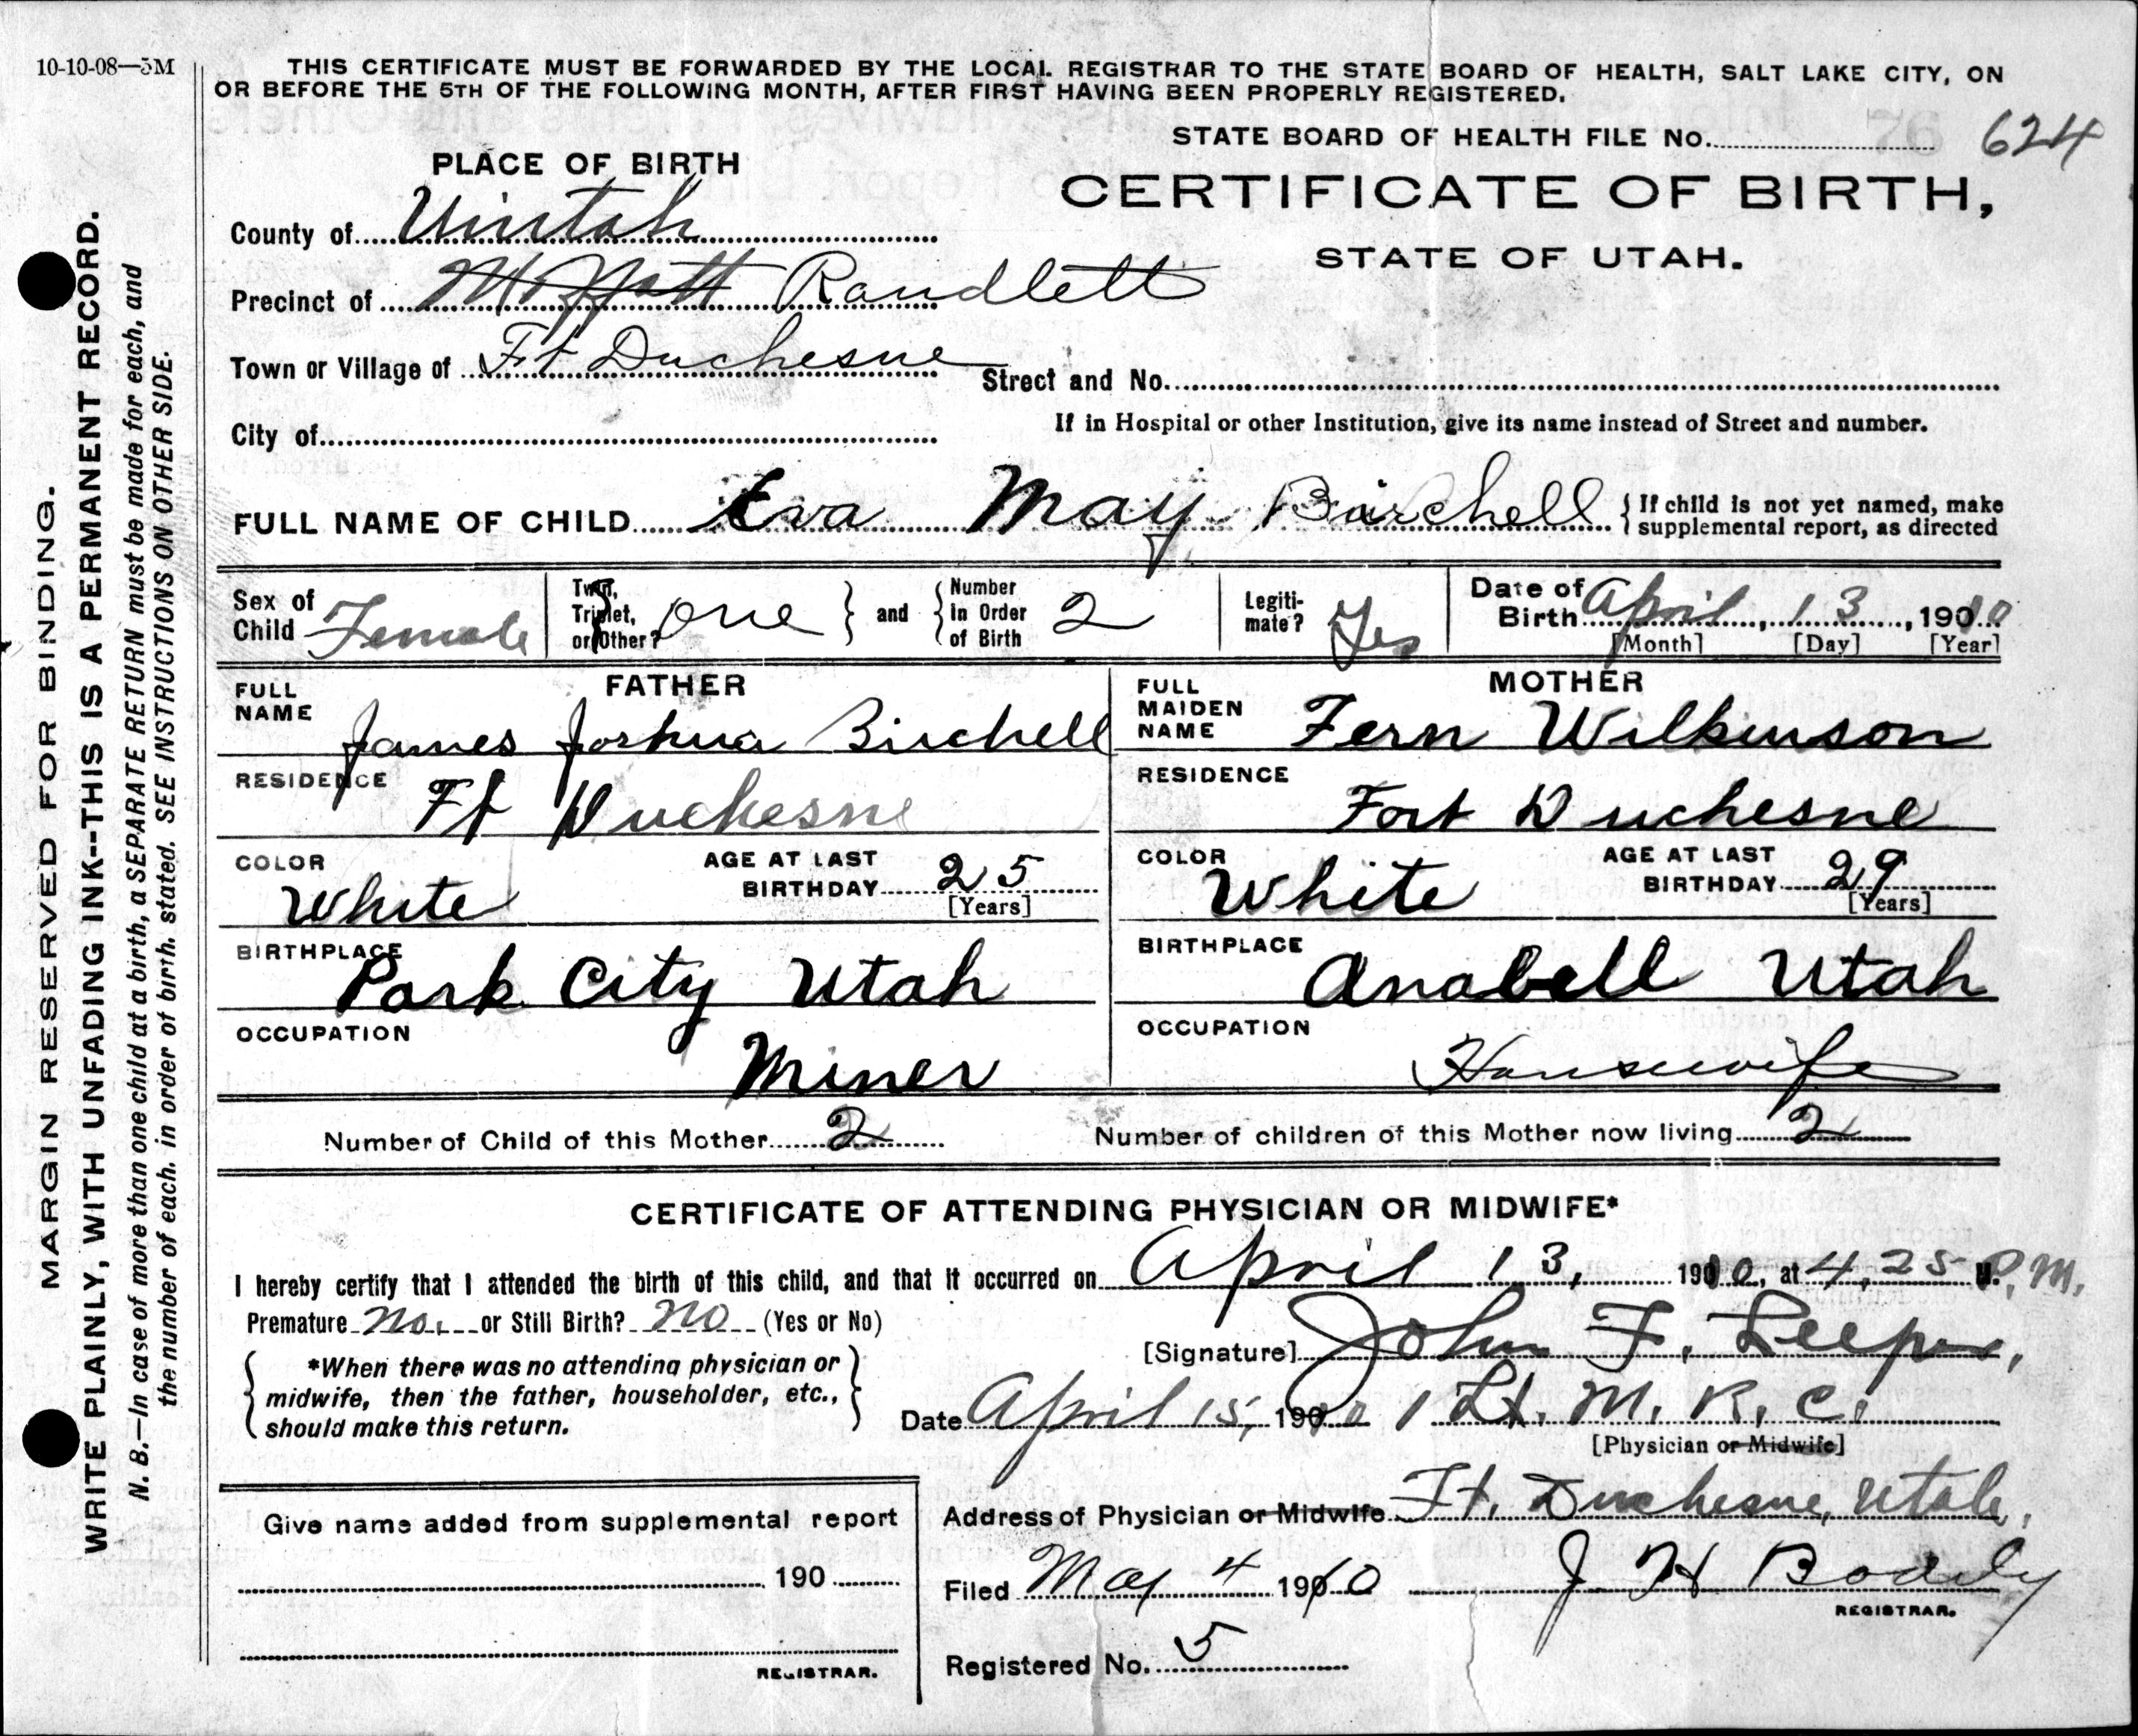 10-10-08—5M
THIS CERTIFICATE MUST BE FORWARDED BY THE LOCAL REGISTRAR TO THE STATE BOARD OF HEALTH, SALT LAKE CITY, ON
OR BEFORE THE 5TH OF THE FOLLOWING MONTH, AFTER FIRST HAVING BEEN PROPERLY REGISTERED.
STATE BOARD OF HEALTH FILE No. 624
PLACE OF BIRTH
CERTIFICATE OF BIRTH,
STATE OF UTAH.
County of Uintah
Precinct of Moffatt Randlett
Town or Village of Ft Duchesne
Street and No.
If in Hospital or other Institution, give its name instead of Street and number.
City of
FULL NAME OF CHILD Eva May Birchell {If child is not yet named, make
supplemental report, as directed
Sex of Child Female
Twin, Triplet, or Other? one } and { Number in Order of Birth 2
Legiti-mate? Yes
Date of Birth April 13, 1910
[Month] [Day] [Year]
FATHER
FULL NAME James Joshua Birchell
RESIDENCE Ft Duchesne
COLOR White
AGE AT LAST BIRTHDAY 25
[Years]
BIRTHPLACE Park City Utah
OCCUPATION Miner
MOTHER
FULL MAIDEN NAME Fern Wilkinson
RESIDENCE Fort Duchesne
COLOR White
AGE AT LAST BIRTHDAY 29
[Years]
BIRTHPLACE Anabell Utah
OCCUPATION Housewife
Number of Child of this Mother 2
Number of children of this Mother now living 2
CERTIFICATE OF ATTENDING PHYSICIAN OR MIDWIFE*
I hereby certify that I attended the birth of this child, and that it occurred on April 13, 1910, at 4,25 P.M.
Premature No. or Still Birth? No (Yes or No)
[Signature] John F. Leeper,
*When there was no attending physician or
midwife, then the father, householder, etc.,
should make this return.
Date April 15, 1910 1 Lt. M. R. C.
[Physician or Midwife]
Address of Physician or Midwife Ft. Duchesne, Utah.
Give name added from supplemental report
190
REGISTRAR.
Filed May 4 1910 J H Bodily
REGISTRAR.
Registered No. 5
MARGIN RESERVED FOR BINDING.
WRITE PLAINLY, WITH UNFADING INK--THIS IS A PERMANENT RECORD.
N. B.—In case of more than one child at a birth, a SEPARATE RETURN must be made for each, and
the number of each, in order of birth, stated. SEE INSTRUCTIONS ON OTHER SIDE.